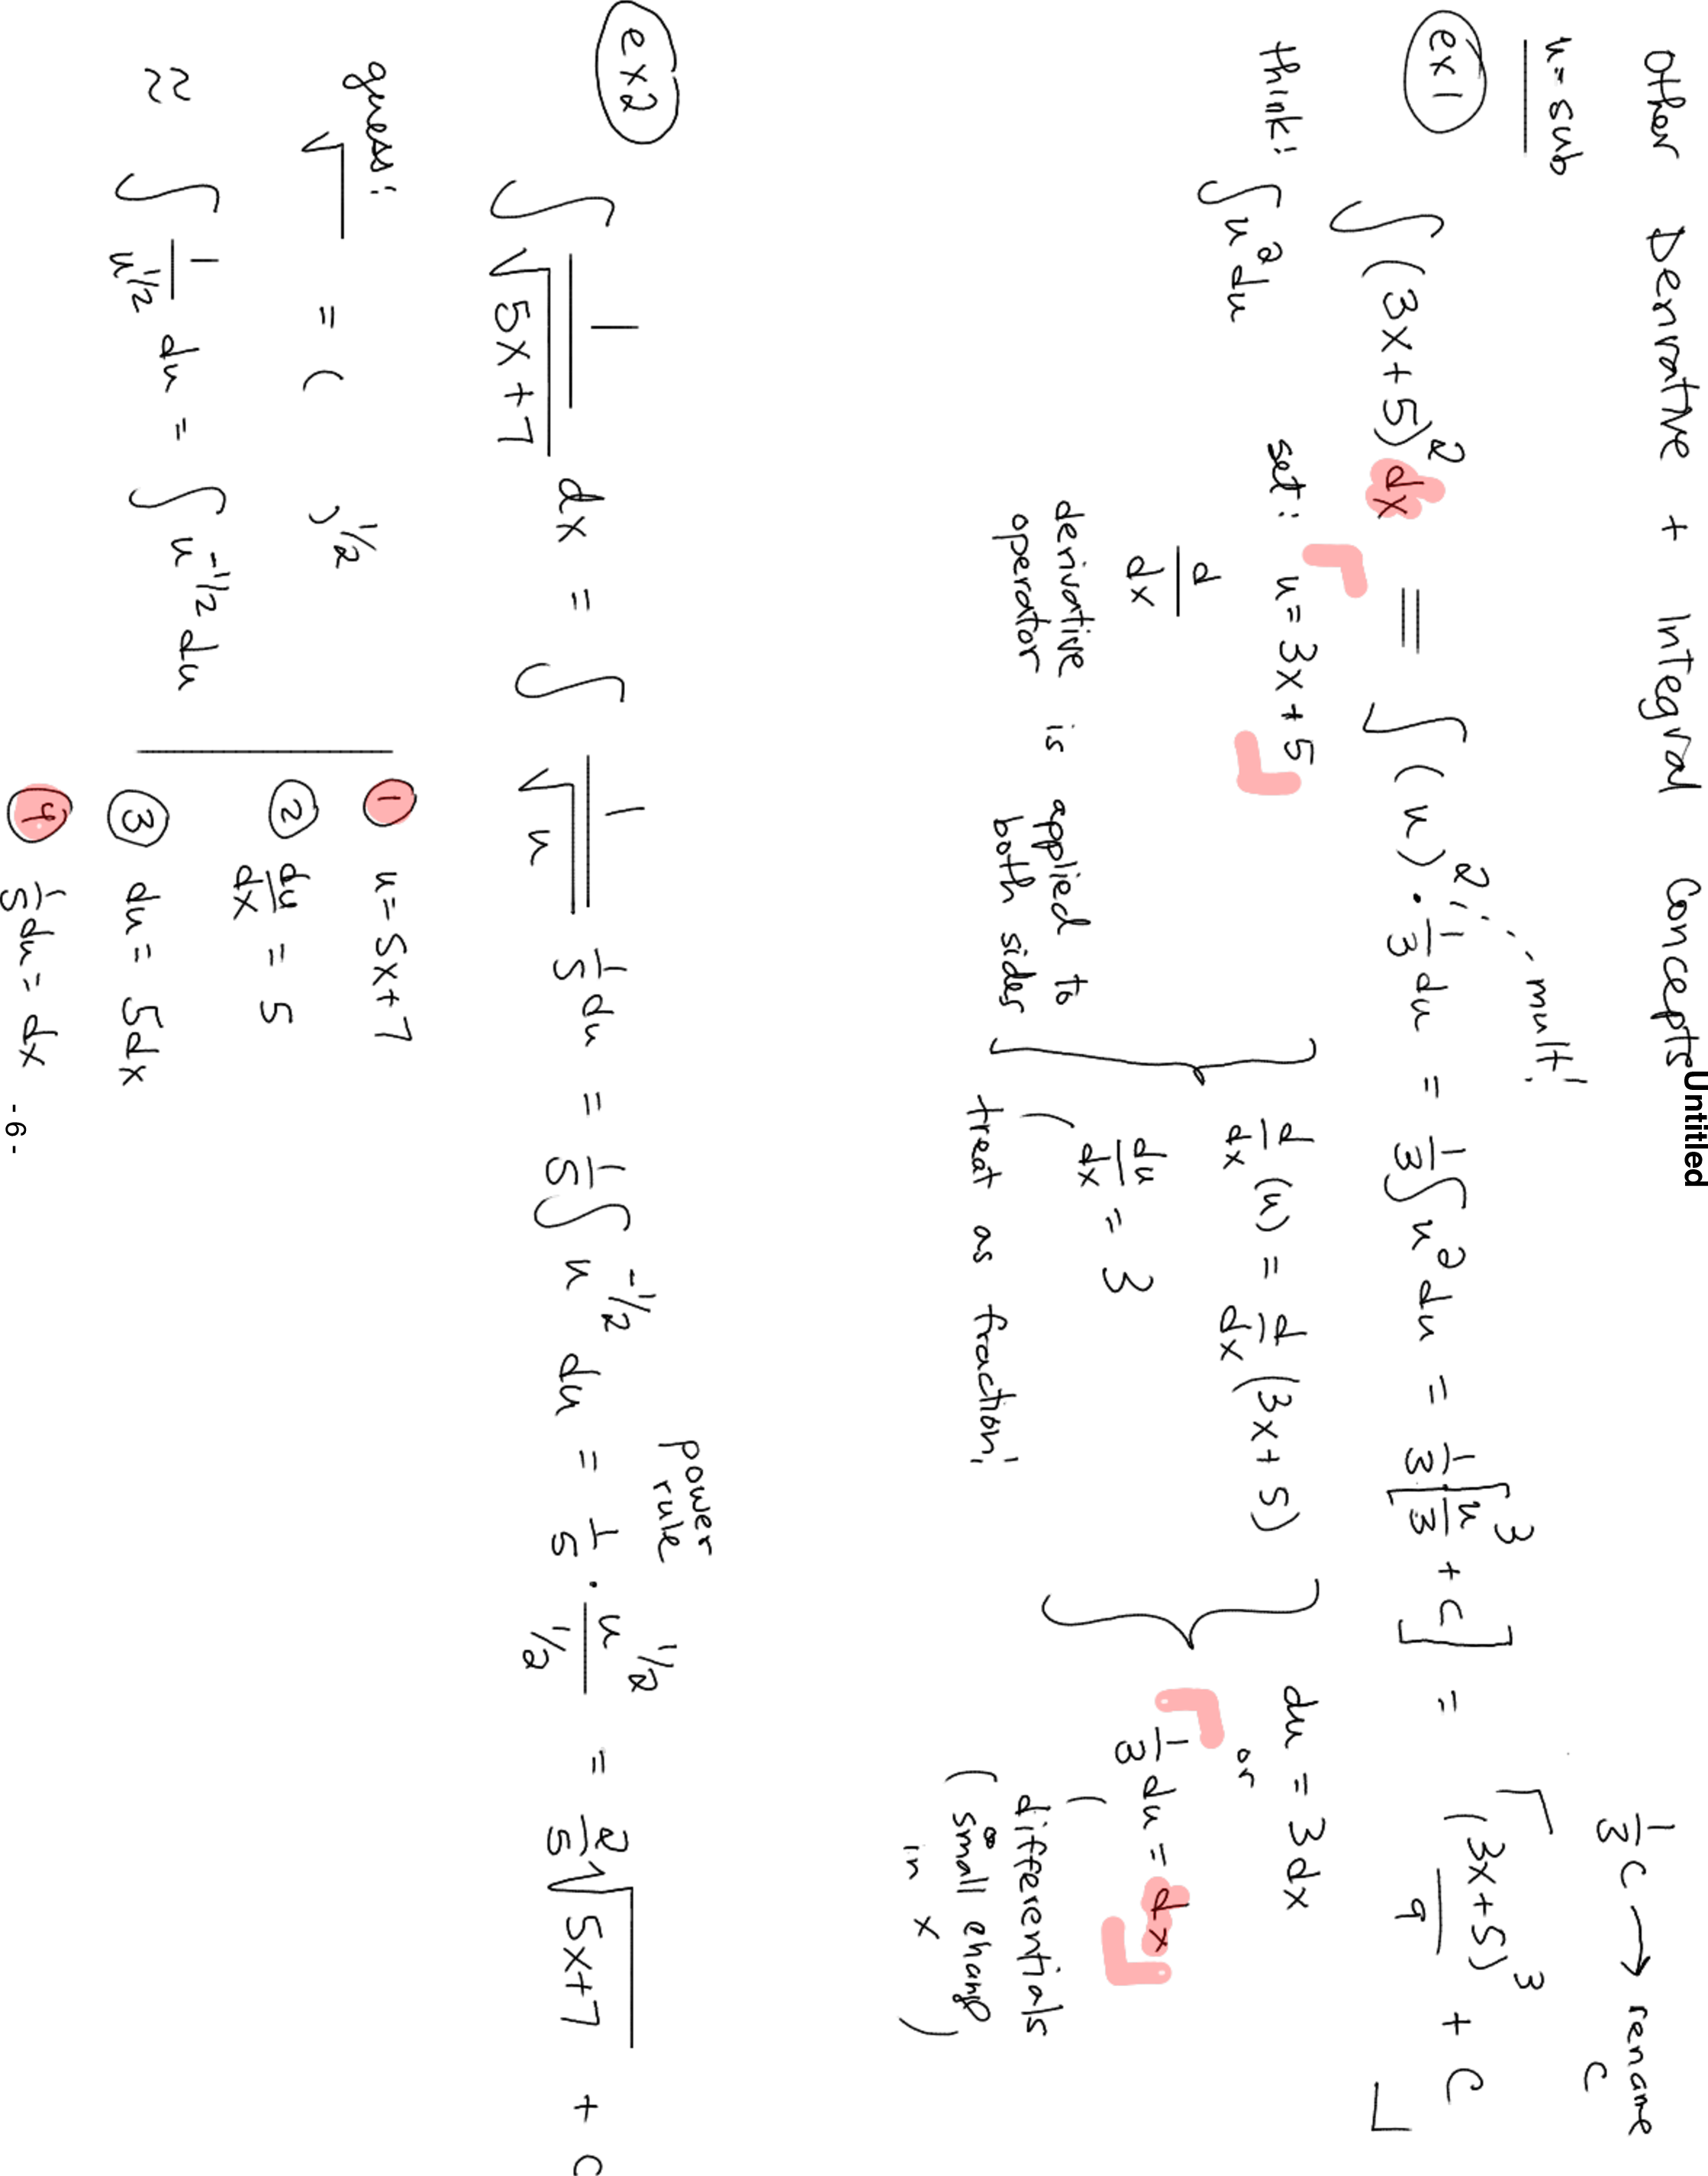 Other Derivative + Integral Concepts
Untitled
u-sub
ex 1
∫ (3x+5)² dx = ∫ (u)² · 1/3 du = 1/3 ∫ u² du = 1/3 [u³/3 + c] = (3x+5)³/9 + C
mult!
1/3 c → rename c
think: ∫ u² du
set: u = 3x+5
d/dx
derivative is applied to
operator both sides
d/dx (u) = d/dx (3x+5)
du/dx = 3
treat as fraction!
du = 3 dx
or
1/3 du = dx
differentials
(∞ small change
in x)
ex 2
∫ 1/√(5x+7) dx = ∫ 1/√u 1/5 du = 1/5 ∫ u^(-1/2) du = 1/5 · u^(1/2)/(1/2) = 2/5 √(5x+7) + c
power
rule
guess!
√ = ( )^(1/2)
≈ ∫ 1/u^(1/2) du = ∫ u^(-1/2) du
① u = 5x+7
② du/dx = 5
③ du = 5dx
④ 1/5 du = dx
- 6 -